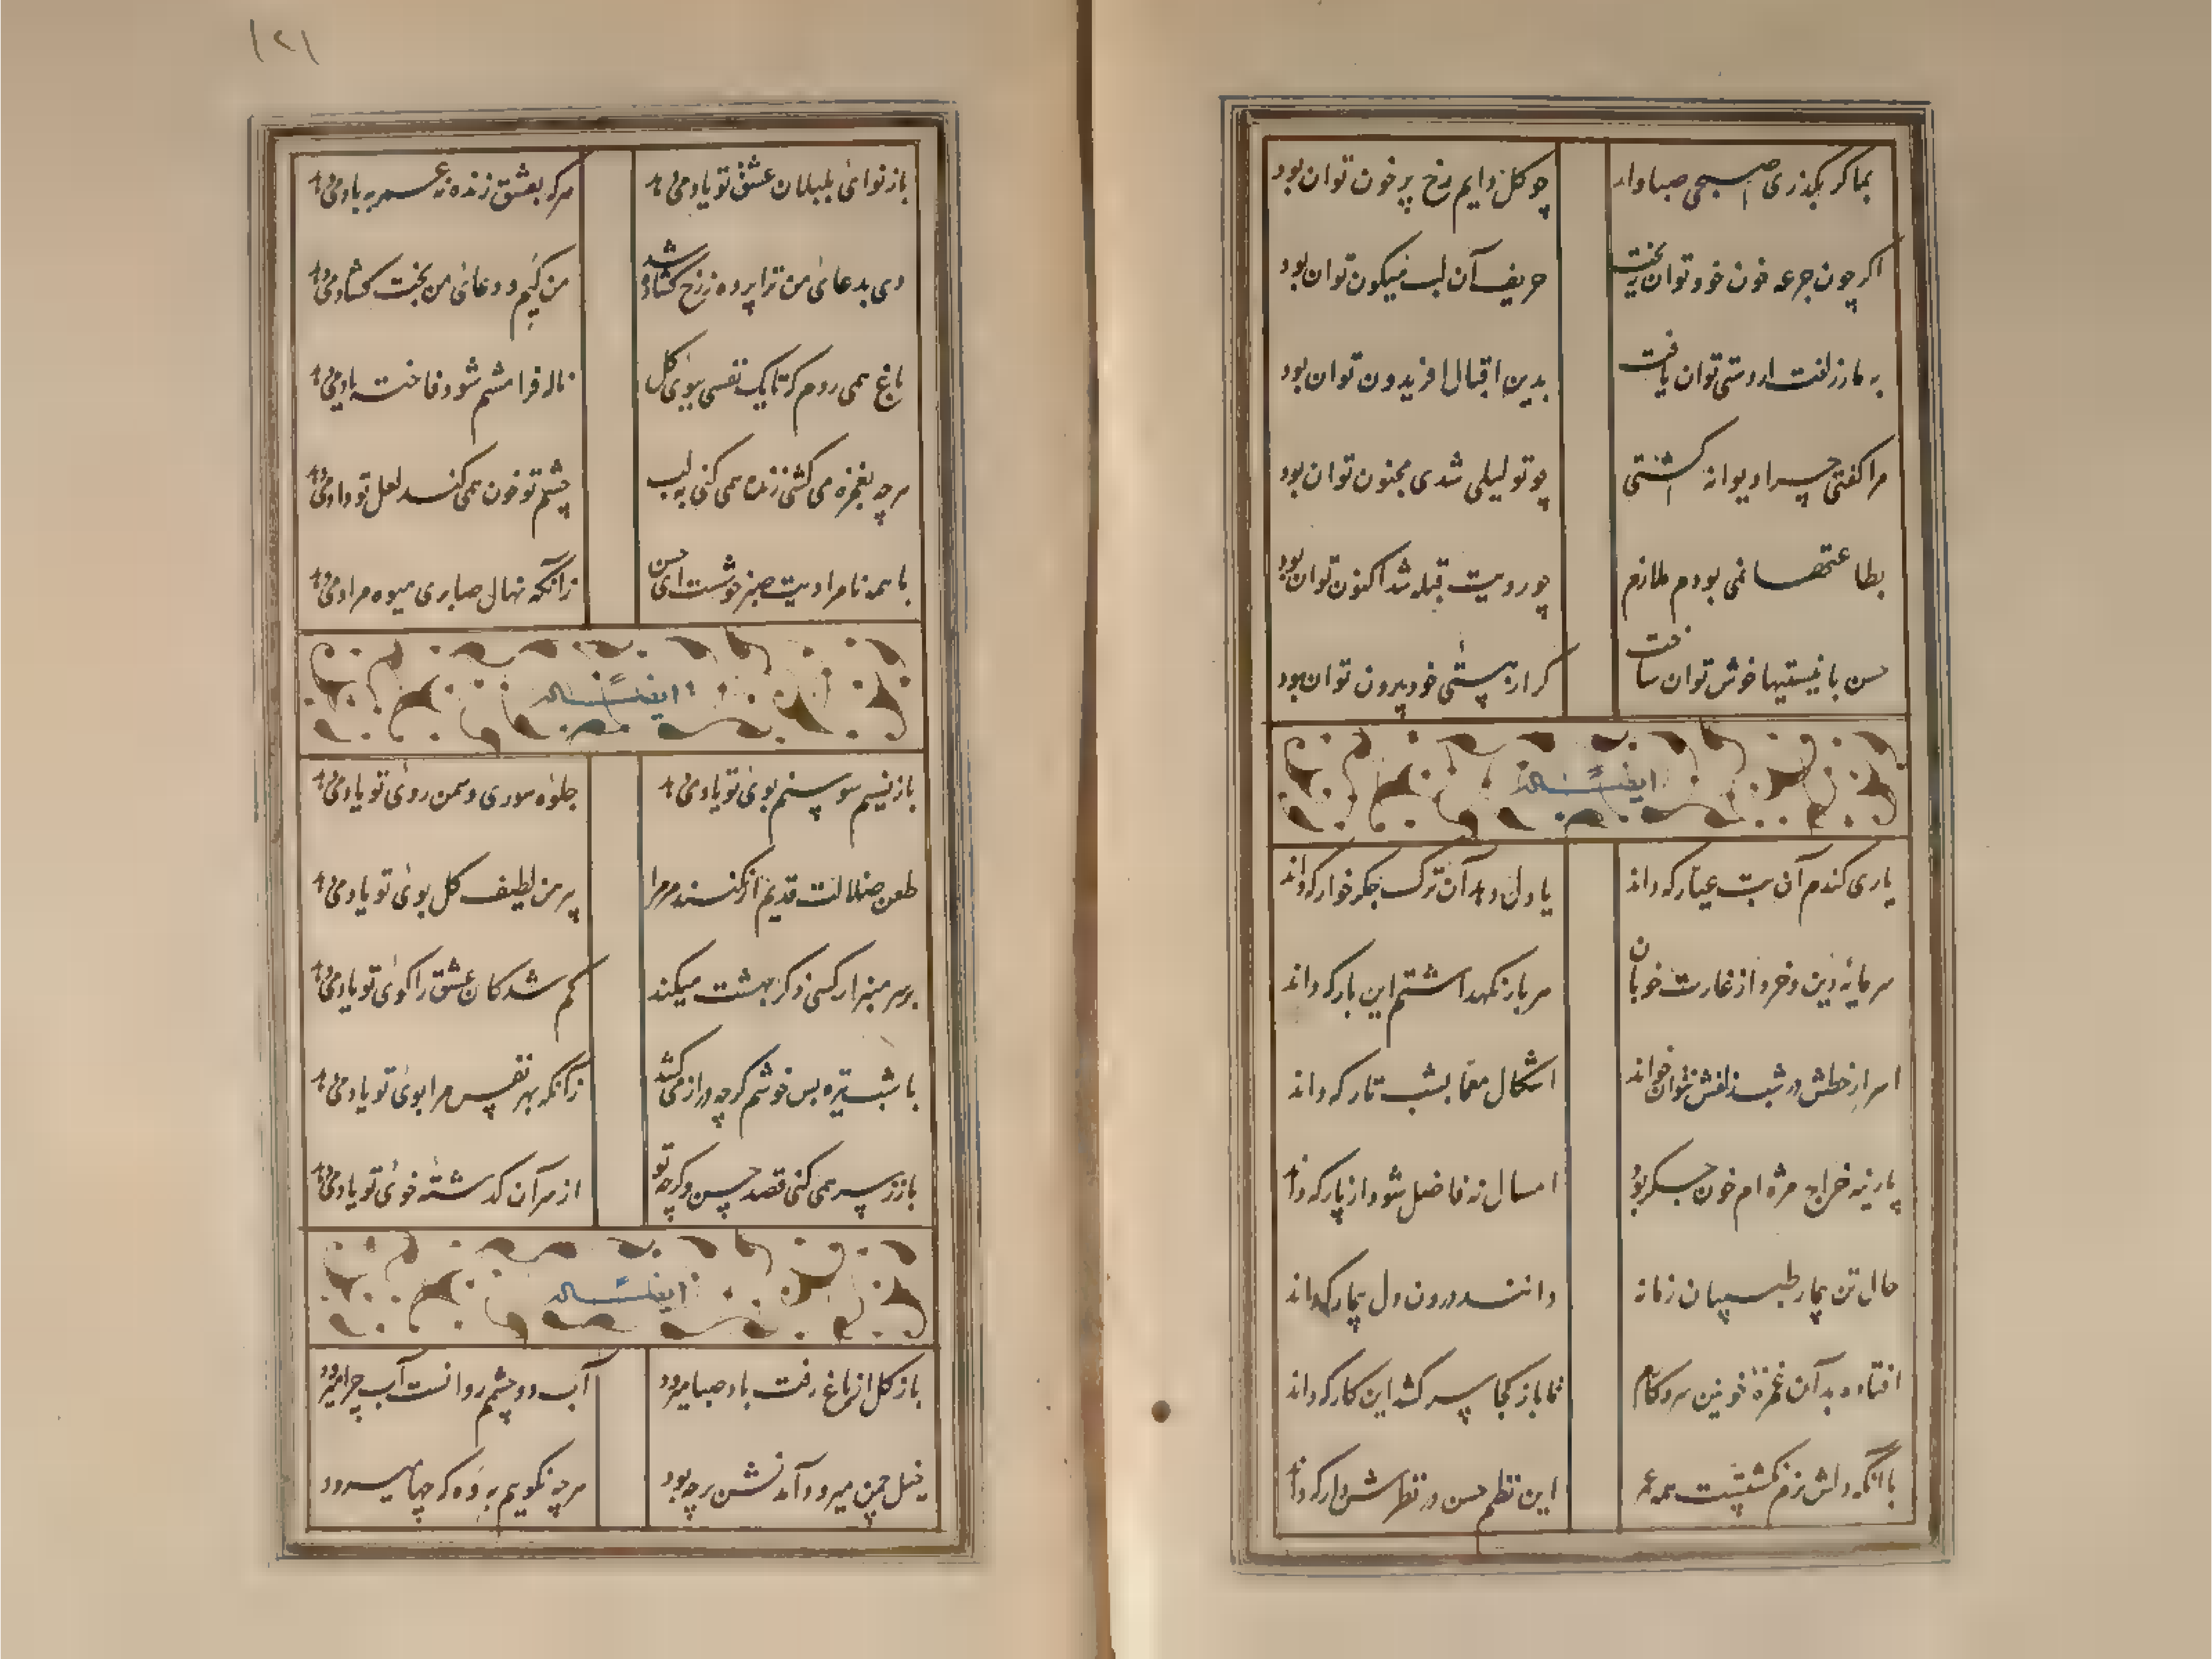 بما کر بکذری صبحی صبا وار
چو کل دایم رخ پر خون توان بود
اکر چون جرعه خون خود توان ریخت
حریف آن لب میکون توان بود
به مار زلفت ار دستی توان یافت
بدین اقبال افریدون توان بود
مرا کفتی چرا دیوانه کشتی
چو تو لیلی شدی مجنون توان بود
بطاعتها نمی بودم ملازم
چو رویت قبله شد اکنون توان بود
حسن با نیستیها خوش توان ساخت
کر از هستی خود بیرون توان بود
ایضاً له
یاری کندم آن بت عیار که داند
یا دل دهد آن ترک جکر خوار که داند
سرمایه دین و خرد از غارت خوبان
هر بار نکهداشتم این بار که داند
اسرار خطش در شب زلفش نتوان خواند
اشکال معما بشب تار که داند
پارینه خراج مژه ام خون جکر بود
امسال نه فاضل شود از پار که داند
حال تن بیمار طبیبان زمانه
دانند درون دل بیمار که داند
افتاده بدان غمزه خونین سر و کارم
تا باز کجا سر کشد این کار که داند
با آنکه دلش نرم نکشتست همه عمر
این نظم حسن در نظرش دار که داند
۱۲۱
باز نوای بلبلان عشق تو یاد می دهد
هرکه بعشق زنده نه عمر به باد می دهد
دی بدعای من ترا پرده ز رخ کشاده شد
من کیم و دعای من بخت کشاد می دهد
باغ همی روم که تا یک نفسی ببوی کل
ناله فرامشم شود فاخته یاد می دهد
هر چه بغمزه می کشی زنده همی کنی به لب
چشم تو خون همی کند لعل تو داد می دهد
با همه نامرادیت صبر خوشست ای حسن
زآنکه نهال صابری میوه مراد می دهد
ایضاً له
باز نسیم سوسنم بوی تو یاد می دهد
جلوه سوری و سمن روی تو یاد می دهد
طعن ضلالت قدیم از کنند مر مرا
پیرهن لطیف کل بوی تو یاد می دهد
بر سر منبر ار کسی ذکر بهشت میکند
کم شدکان عشق را کوی تو یاد می دهد
با شب تیره بس خوشم کرچه دراز می کشد
زآنکه بهر نفس مرا بوی تو یاد می دهد
باز ز سر همی کنی قصد حسن و کرچه تو
از هر آن کذشته خوی تو یاد می دهد
ایضاً له
باز کل از باغ رفت باد صبا میرود
آب دو چشم روانست آب چرا میرود
خیل چمن میرود آمدنش هرچه بود
هرچه نکویم به ده که چها میرود